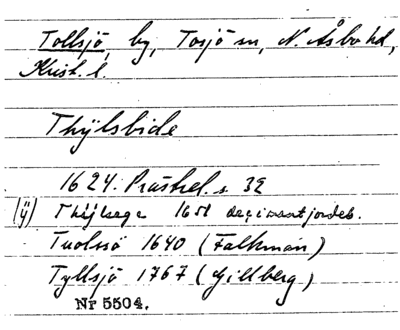 Tollsjö, by, Tosjö sn, N. Åsbo hd,
Krist. l.
Thÿlsbide
1624. Prästrel. s 32
(ÿ) Thÿlsege 1651 decimantjordeb.
Tuolssö 1640 (Falkman)
Tyllsjö 1767 (Gillberg)
Nr 5504.